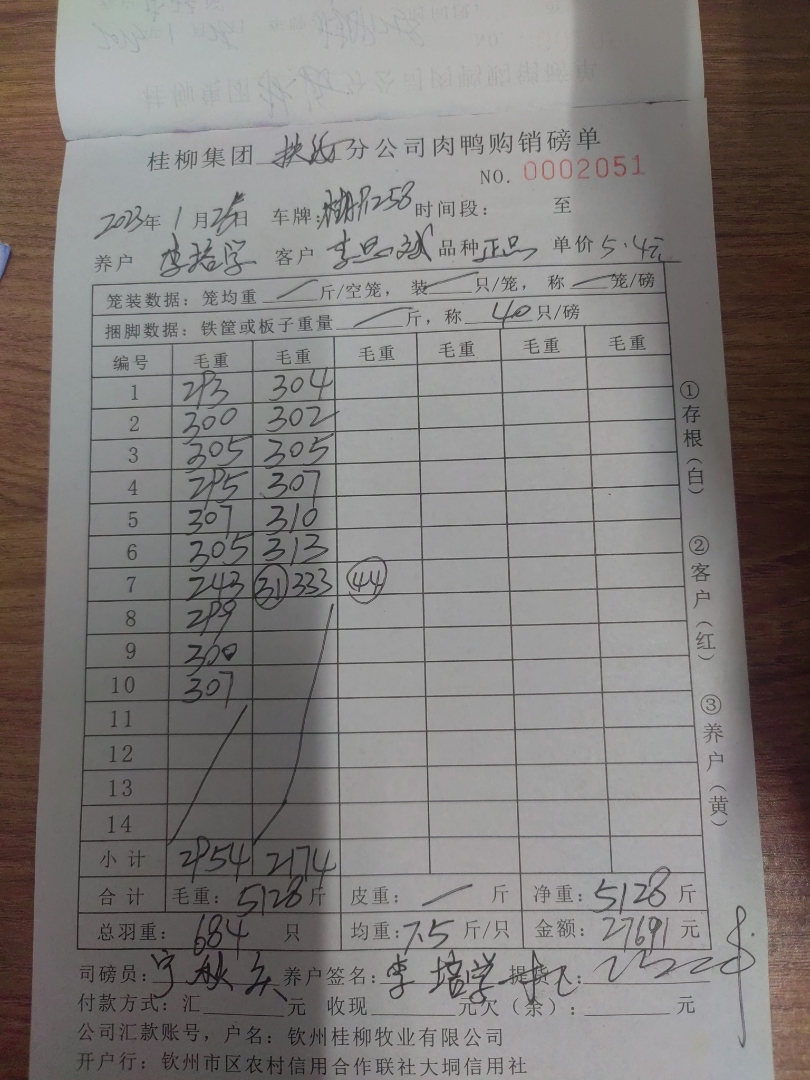 桂柳集团 分公司肉鸭购销磅单
NO. 0002051
2023年 1月 日 车牌: 258 时间段: 至
养户 李培学 客户 李思斌 品种 正品 单价 5.4元
笼装数据: 笼均重 — 斤/空笼, 装 — 只/笼, 称 — 笼/磅
捆脚数据: 铁筐或板子重量 — 斤, 称 40 只/磅
编号 毛重 毛重 毛重 毛重 毛重 毛重
1 293 304
2 300 302
3 305 305
4 295 307
5 307 310
6 305 313
7 243 (31) 333 (44)
8 299
9 300
10 307
11
12
13
14
小计 2954 2174
合计 毛重: 5128 斤 皮重: — 斤 净重: 5128 斤
总羽重: 684 只 均重: 7.5 斤/只 金额: 27691 元
司磅员: 养户签名: 李培学 提货 :
付款方式: 汇 元 收现 元 欠(余): 元
公司汇款账号, 户名: 钦州桂柳牧业有限公司
开户行: 钦州市区农村信用合作联社大垌信用社
①存根(白) ②客户(红) ③养户(黄)